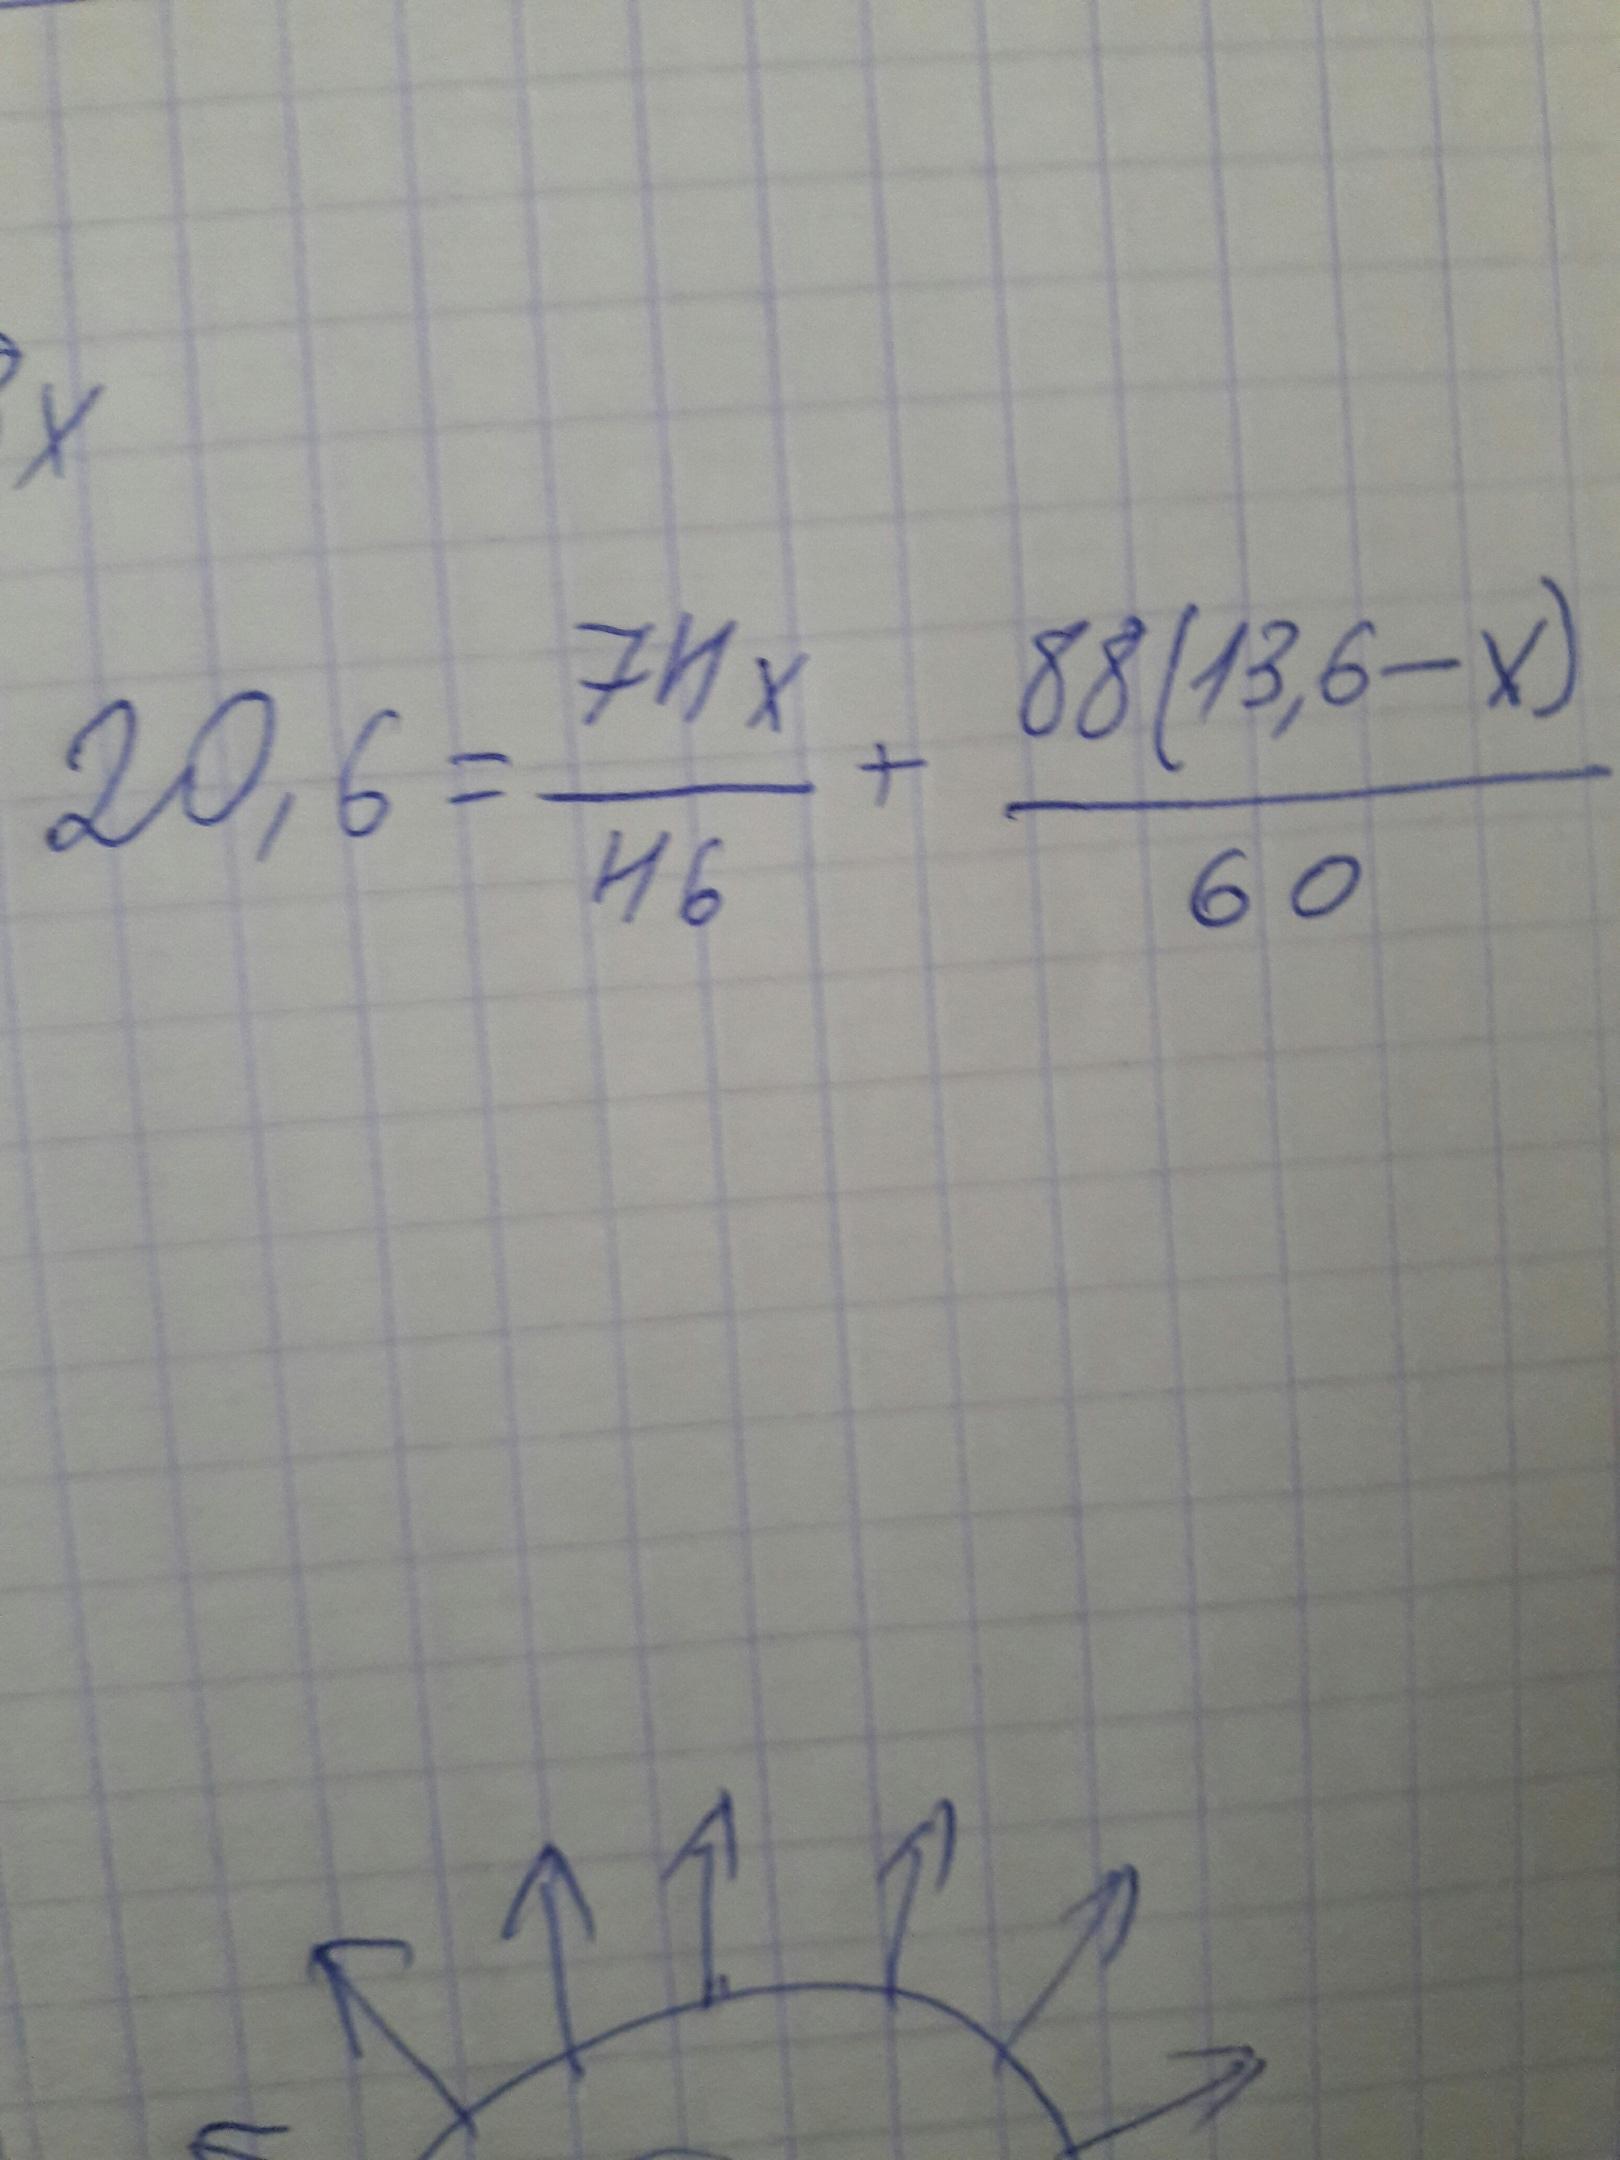 x
20,6 = 74x/46 + 88(13,6-x)/60